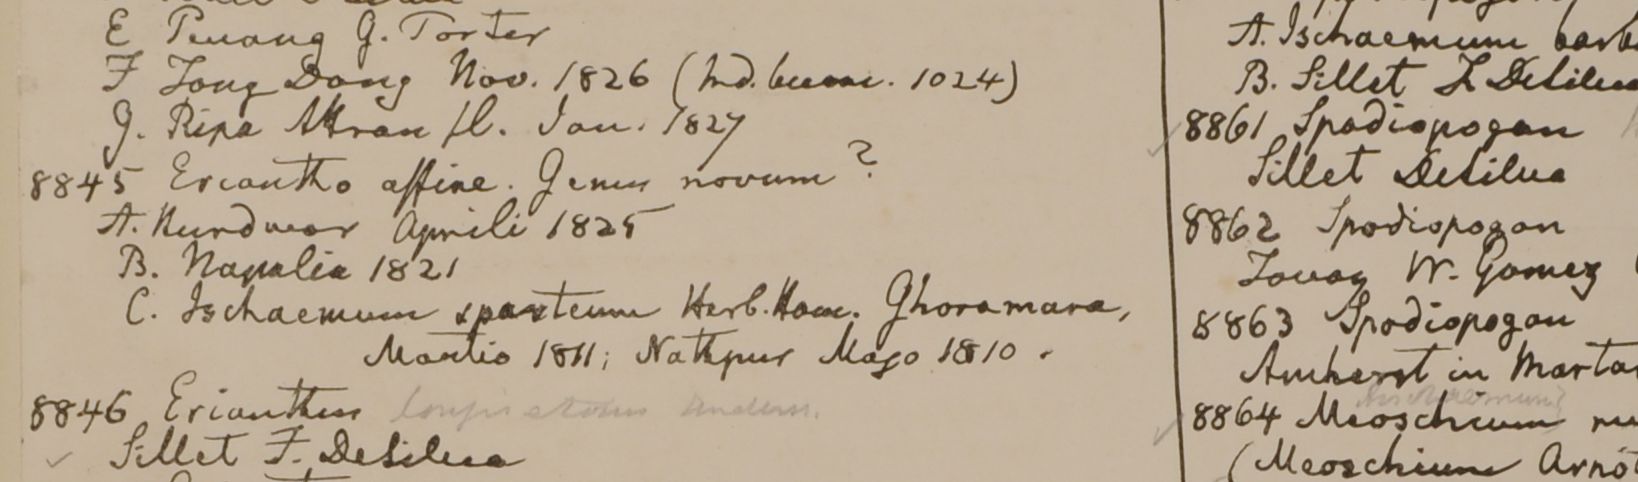 E Penang G. Porter
F Tong Dong Nov. 1826 (md. burm. 1024)
G. Ripa Attran fl. Jan. 1827
8845 Eriantho affine. Genus novum?
A. Hurdwar Aprili 1825
B. Napalia 1821
C. Ischaemum sparteum Herb. Ham. Ghoramara,
Martio 1811; Nathpur Majo 1810.
8846 Erianthus
Sillet F. DeSilva
A. Ischaemum barb
B. Sillet F DeSilva
8861 Spodiopogon
Sillet DeSilva
8862 Spodiopogon
Tavoy W. Gomez
8863 Spodiopogon
Amherst in Marta
8864 Meoschium
(Meoschium Arnot